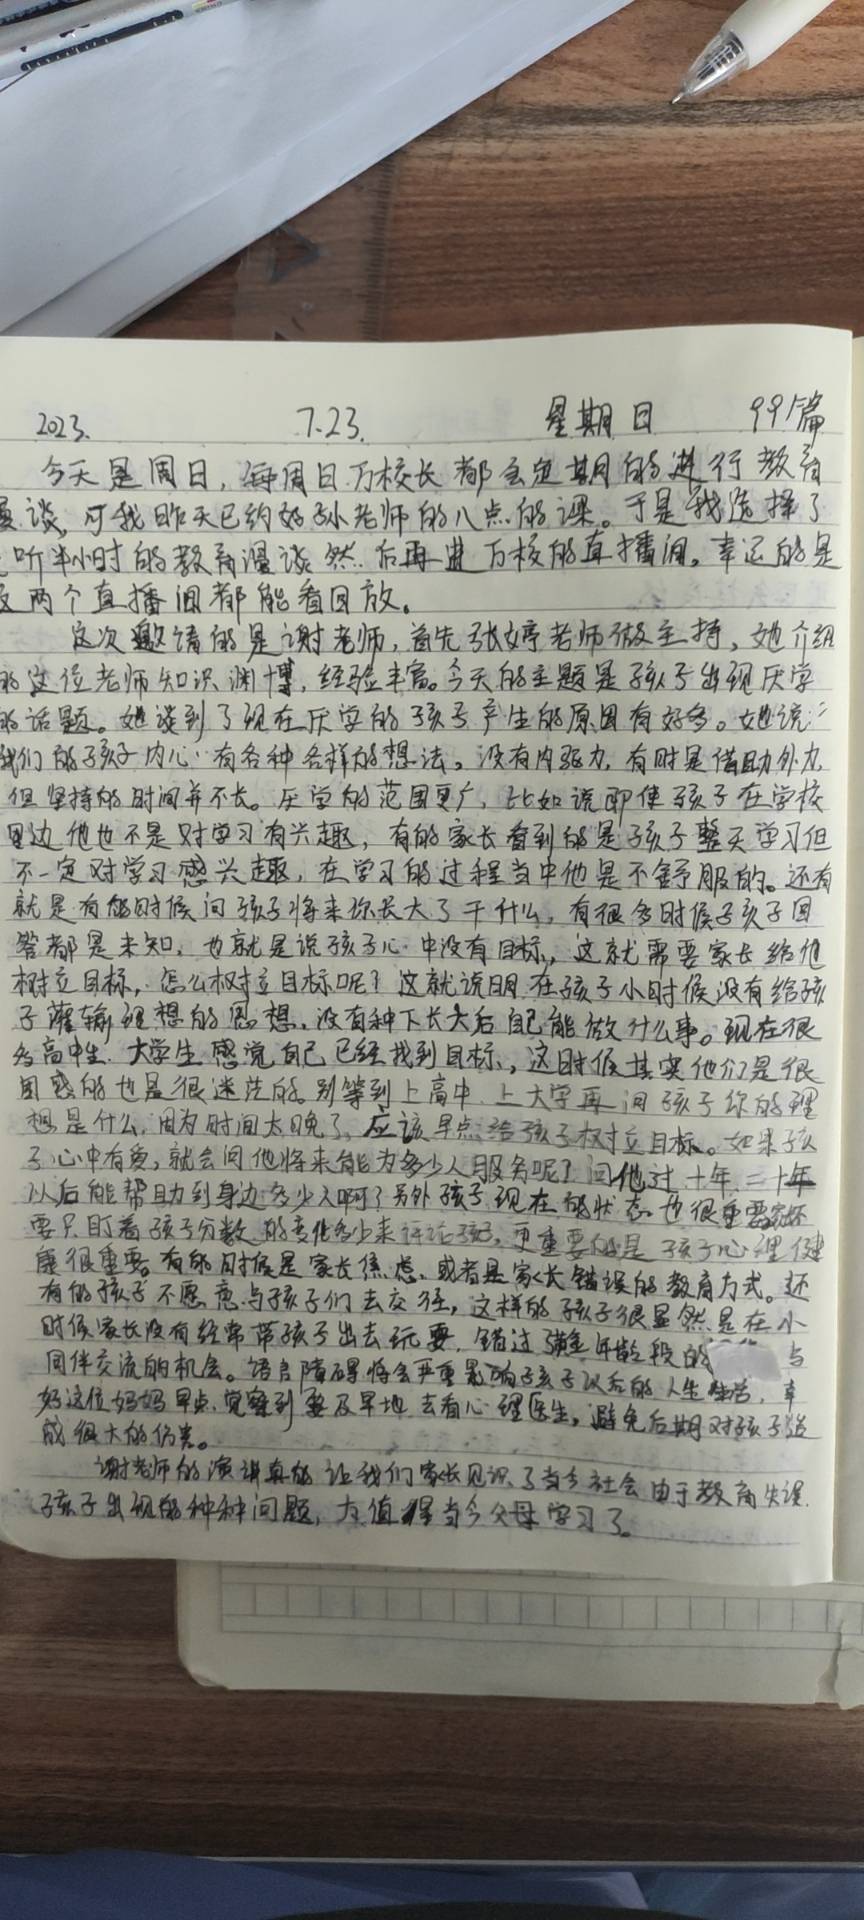 2023. 7.23. 星期日 991篇
今天是周日，每周日万校长都会定期的进行教育
漫谈，可我昨天已约好孙老师的八点的课。于是我选择了
听半小时的教育漫谈然后再进万校的直播间。幸运的是
两个直播间都能看回放。
这次邀请的是谢老师，首先张婷老师做主持，她介绍
的这位老师知识渊博，经验丰富。今天的主题是孩子出现厌学
的话题。她谈到了现在厌学的孩子产生的原因有好多。她说：
我们的孩子内心有各种各样的想法。没有内驱力，有时是借助外力，
但坚持的时间并不长。厌学的范围更广，比如说即使孩子在学校
里边他也不是对学习有兴趣，有的家长看到的是孩子整天学习但
不一定对学习感兴趣，在学习的过程当中他是不舒服的。还有
就是有的时候问孩子将来你长大了干什么，有很多时候孩子回
答都是未知，也就是说孩子心中没有目标，这就需要家长给他
树立目标，怎么树立目标呢？这就说明在孩子小时候没有给孩
子灌输理想的思想，没有种下长大后自己能做什么事。现在很
多高中生、大学生感觉自己已经找到目标，这时候其实他们是很
困惑的也是很迷茫的。别等到上高中、上大学再问孩子你的理
想是什么，因为时间太晚了，应该早点给孩子树立目标。如果孩
子心中有爱，就会问他将来能为多少人服务呢？问他过十年、二十年
以后能帮助到身边多少人啊？另外孩子现在的状态也很重要
要只盯着孩子分数的变化多少来评论孩子，更重要的是孩子心理健
康很重要。有的时候是家长焦虑，或者是家长错误的教育方式。还
有的孩子不愿意与孩子们去交往，这样的孩子很显然是在小
时候家长没有经常带孩子出去玩耍，错过黄金年龄段的 与
同伴交流的机会。语言障碍将会严重影响孩子以后的人生生活，幸
好这位妈妈早点觉察到要及早地去看心理医生，避免后期对孩子造
成很大的伤害。
谢老师的演讲真的让我们家长见识了当今社会由于教育失误
孩子出现的种种问题，太值得当今父母学习了。